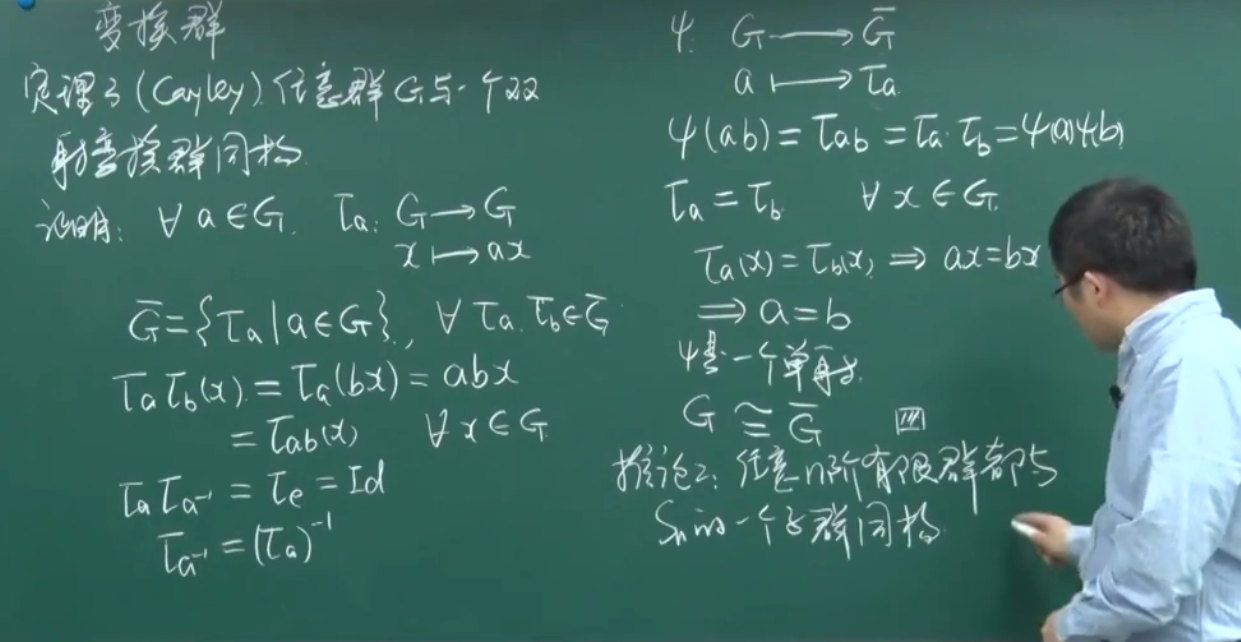 变换群
定理3 (Cayley). 任意群G与一个双
射变换群同构.
证明: ∀ a∈G. τa: G→G
x↦ax
Ḡ={τa | a∈G}, ∀ τa. τb∈Ḡ.
τaτb(x)=τa(bx)=abx
=τab(x) ∀ x∈G
τaτa⁻¹=τe=Id
τa⁻¹=(τa)⁻¹
ψ: G→Ḡ
a↦τa.
ψ(ab)=τab=τa·τb=ψ(a)ψ(b)
τa=τb. ∀ x∈G.
τa(x)=τb(x), ⇒ ax=bx
⇒ a=b
ψ是一个单射.
G≅Ḡ
推论2: 任意n阶有限群都与
Sn的一个子群同构.